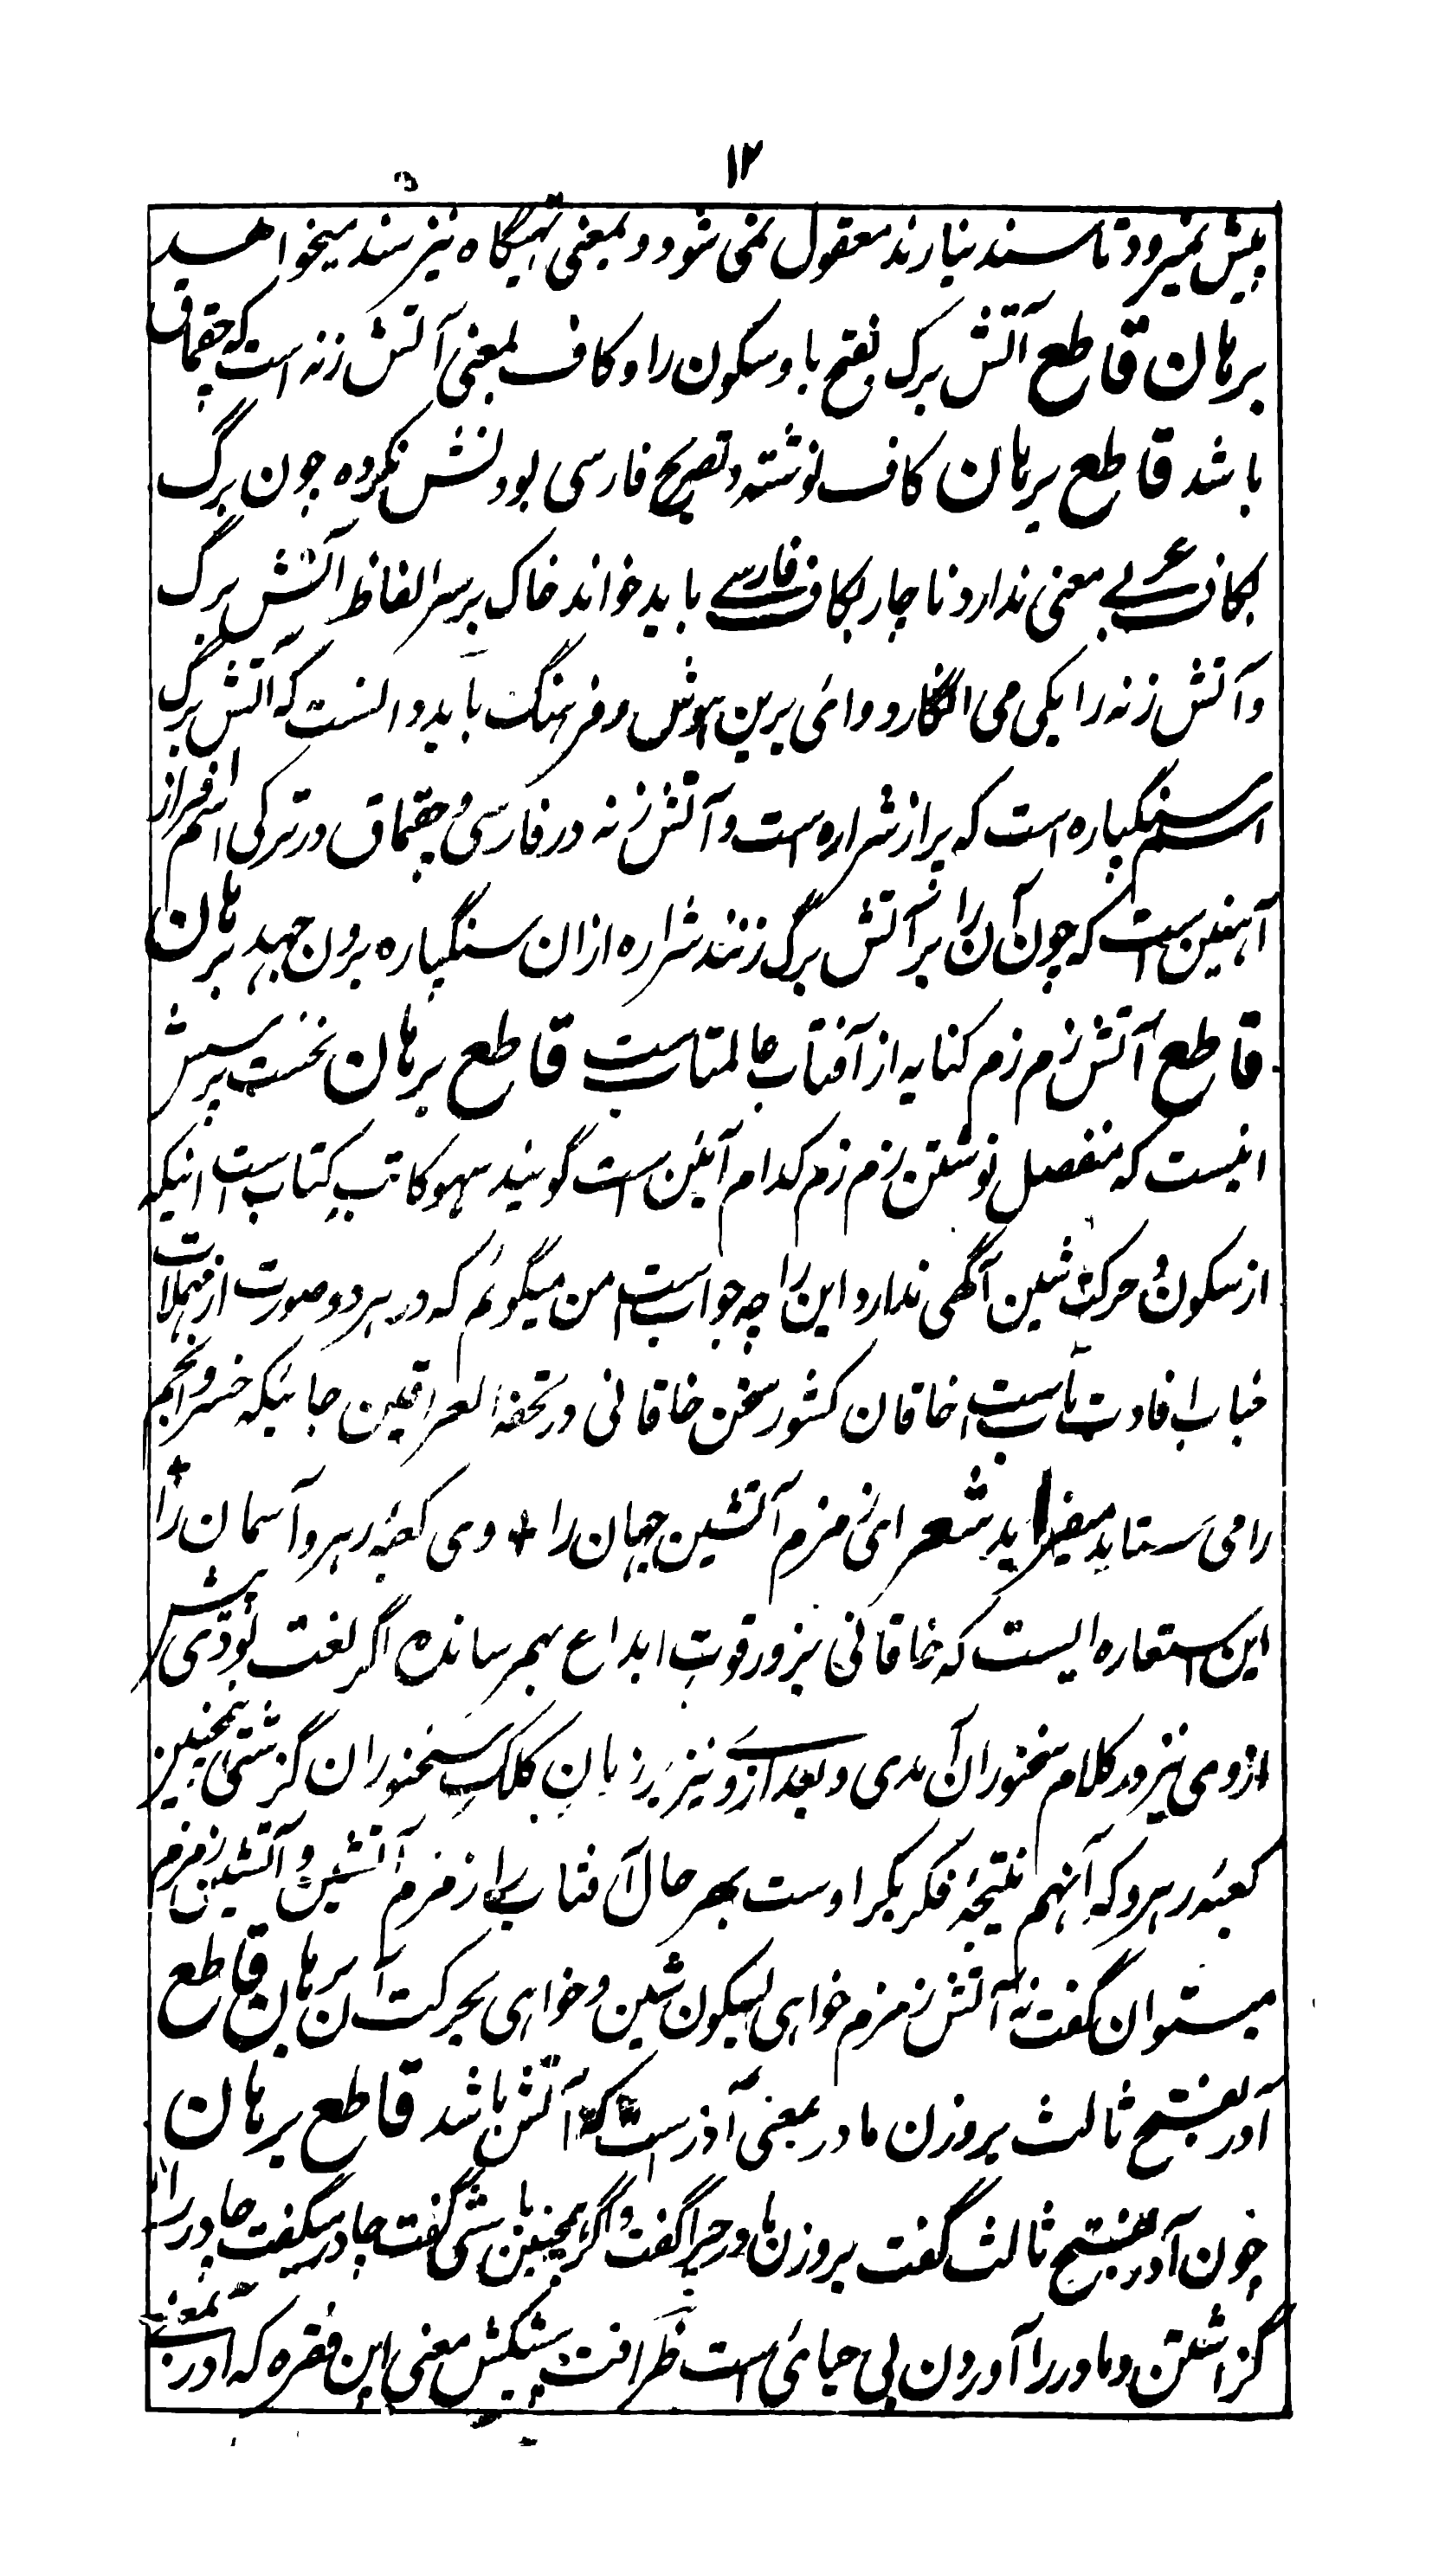 ۱۲
پیش نمیرود تا سند نیارند معقول نمی شود و بمعنی تهیگاه نیز سند میخواهد
برهان قاطع آتش برک بفتح با و سکون را و کاف بمعنی آتش زنه است که چقماق
باشد قاطع برهان کاف نوشته و تصریح فارسی بودنش نکرده چون برگ
بکاف عربے معنی ندارد ناچار بکاف فارسے باید خواند خاک بر سر الفاظ آتش برگ
و آتش زنه را یکی می انگارد وای برین هوش و فرهنگ باید دانست که آتش برگ
اسم سنگپاره است که پر از شراره است و آتش زنه در فارسی و چقماق در ترکی اسم افراز
آهنین ست که چون آن را بر آتش برگ زنند شراره ازان سنگپاره برون جهد برهان
قاطع آتش زم زم کنایه از آفتاب عالمتاب ست قاطع برهان نخست پرسش
اینست که منفصل نوشتن زم زم کدام آئین است گویند سهو کاتب کتاب ست اینکه
از سکون و حرکت شین آگهی ندارد این را چه جواب ست من میگویم که در هر دو صورت از مهملات
جناب افادت مآب ست خاقان کشور سخن خاقانی در تحفة العراقین جائیکه خسرو انجم
را می ستاید میفرماید شعر ای زمزم آتشین جهان را + وی کعبۀ رهرو آسمان را +
این استعاره ایست که خاقانی بزور قوت ابداع بهم رسانده اگر لغت بودی پیش
ازوی نیز در کلام سخنوران آمدی و بعد ازوے نیز بر زبان کلک سخنوران گزشتی همچنین
کعبۀ رهرو که آنهم نتیجۀ فکر بکر اوست بهر حال آفتاب را زمزم آتشین و آتشین زمزم
میتوان گفت نه آتش زمزم خواهی بسکون شین و خواهی بحرکت آن برهان قاطع
آدر بفتح ثالث بروزن مادر بمعنی آذرست که آتش باشد قاطع برهان
چون آدر بفتح ثالث گفت بروزن مادر چرا گفت و اگر همچنین بایستی گفت چادر میگفت چادر را
گزاشتن و مادر را آوردن بی حیائی است ظرافت پیشکش معنی این فقره که آدر بمعنی